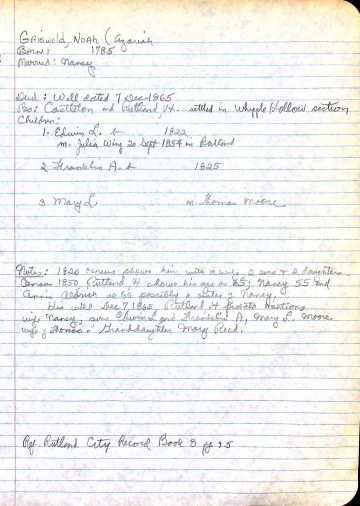 GRISWOLD, NOAH (Azariah
BORN: 1785
Married: Nancy
Died: Will dated 7 Dec 1865
Res: Castleton and Rutland, Vt - settled in Whipple Hollow section
Children:
1. Edwin L. b 1822
m. Julia Wing 20 Sept 1854 in Rutland
2 Franklin A. b 1825
3 Mary L. m. Thomas Moore
Notes: 1820 census shows him with a wife, 2 sons & 2 daughters
Census 1850 Rutland, Vt shows his age as 65, Nancy 55 and
Annis as 60 possibly a sister of Nancy.
His will Dec 7 1865 Rutland Vt Probate Mentions
wife Nancy, sons Edwin L and Franklin A, Mary L. Moore
wife of Thomas & Granddaughter Mary Reed.
Ref Rutland City Record Book 8 pg 95